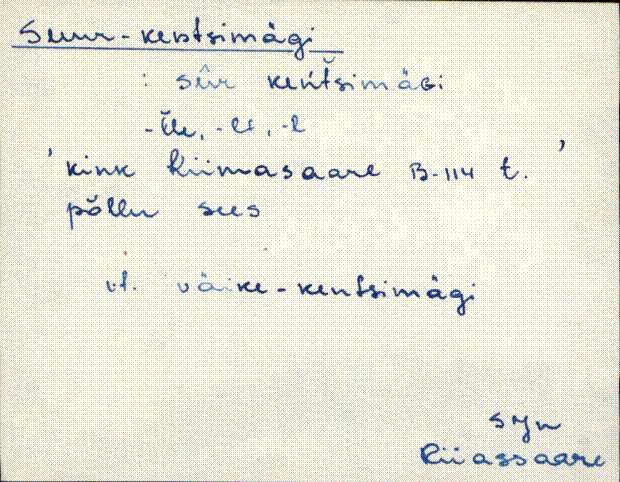 Suur-kentsimägi
: sūr kentšimäGi
-l̆le, -lt, -l
'kink Riimasaare B-114 t.'
põllu sees
vt. väike-kentsimägi
Sjn
Riiassaare